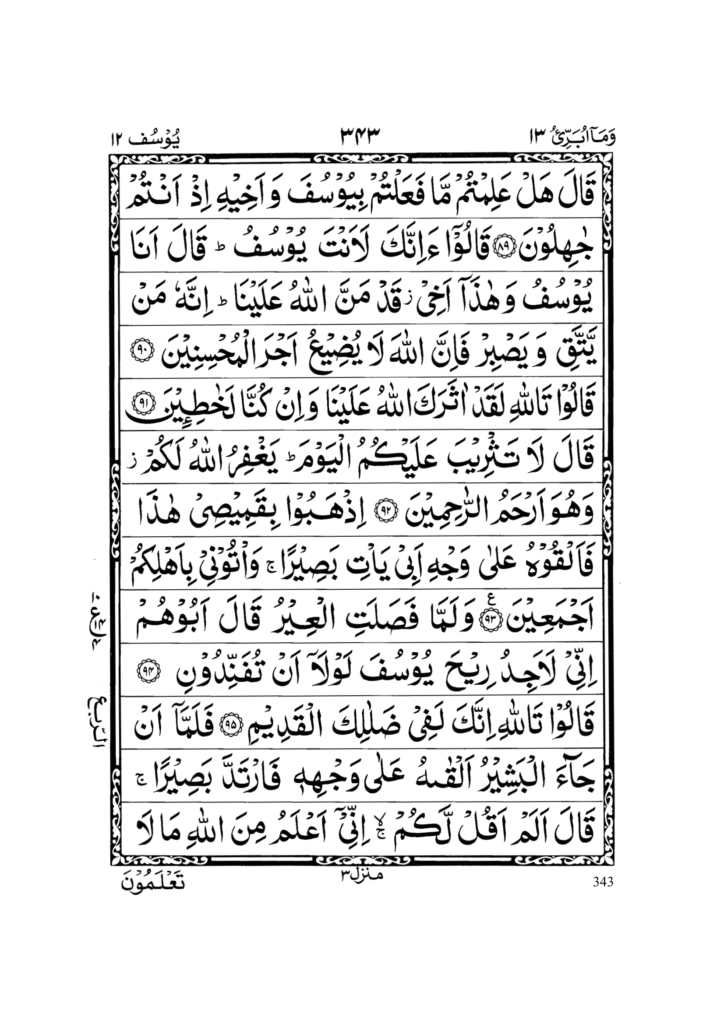 وَمَاۤ اُبَرِّئُ ١٣
٣٤٣
يُوْسُف ١٢
قَالَ هَلْ عَلِمْتُمْ مَّا فَعَلْتُمْ بِيُوْسُفَ وَاَخِيْهِ اِذْ اَنْتُمْ
جٰهِلُوْنَ ﴿٨٩﴾ قَالُوْۤا ءَاِنَّكَ لَاَنْتَ يُوْسُفُ ؕ قَالَ اَنَا
يُوْسُفُ وَهٰذَاۤ اَخِيْ ؗ قَدْ مَنَّ اللّٰهُ عَلَيْنَا ؕ اِنَّهٗ مَنْ
يَّتَّقِ وَيَصْبِرْ فَاِنَّ اللّٰهَ لَا يُضِيْعُ اَجْرَ الْمُحْسِنِيْنَ ﴿٩٠﴾
قَالُوْا تَاللّٰهِ لَقَدْ اٰثَرَكَ اللّٰهُ عَلَيْنَا وَاِنْ كُنَّا لَخٰطِـِٕيْنَ ﴿٩١﴾
قَالَ لَا تَثْرِيْبَ عَلَيْكُمُ الْيَوْمَ ؕ يَغْفِرُ اللّٰهُ لَكُمْ ؗ
وَهُوَ اَرْحَمُ الرّٰحِمِيْنَ ﴿٩٢﴾ اِذْهَبُوْا بِقَمِيْصِيْ هٰذَا
فَاَلْقُوْهُ عَلٰى وَجْهِ اَبِيْ يَاْتِ بَصِيْرًا ۚ وَاْتُوْنِيْ بِاَهْلِكُمْ
اَجْمَعِيْنَ ﴿٩٣﴾ ع وَلَمَّا فَصَلَتِ الْعِيْرُ قَالَ اَبُوْهُمْ
اِنِّيْ لَاَجِدُ رِيْحَ يُوْسُفَ لَوْلَاۤ اَنْ تُفَنِّدُوْنِ ﴿٩٤﴾
قَالُوْا تَاللّٰهِ اِنَّكَ لَفِيْ ضَلٰلِكَ الْقَدِيْمِ ﴿٩٥﴾ فَلَمَّاۤ اَنْ
جَآءَ الْبَشِيْرُ اَلْقٰىهُ عَلٰى وَجْهِهٖ فَارْتَدَّ بَصِيْرًا ۚ
قَالَ اَلَمْ اَقُلْ لَّكُمْ ۙۚ اِنِّيْۤ اَعْلَمُ مِنَ اللّٰهِ مَا لَا
الربع
تَعْلَمُوْنَ
منزل ٣
343